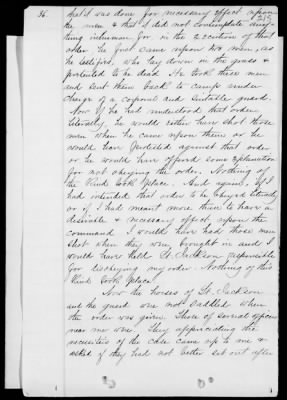 36.
that I was done for necessary effect upon
259
the men & that I did not contemplate any-
thing inhuman for in the execution of that
order he first came upon two men, as
he testifies, who lay down in the grass &
pretended to be dead. He took those men
and sent them back to camp under
charge of a corporal and suitable guard.
Now if he had understood that order
literally, he would either have shot those
men when he came upon them or he
would have protested against that order
or he would have offered some explanation
for not obeying the order. Nothing of
the kind took place. And again, if I
had intended that order to be obeyed literally
or if I had meant more than to have a
desirable & necessary effect, upon the
command, I would have had those men
shot when they were brought in and I
would have held Lt. Jackson responsible
for disobeying my order. Nothing of this
kind took place.
Now the horses of Lt. Jackson
and the guard were not saddled when
the order was given. Those of several officers
near me were. They appreciating the
necessities of the case came up to me &
asked if they had not better set out after